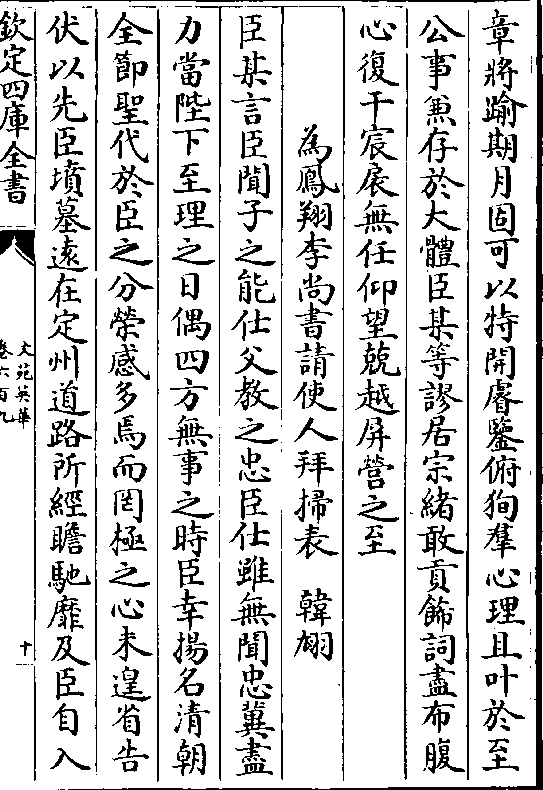 章將踰期月固可以特開睿鑒俯狥羣心理且叶於至
公事兼存於大體臣某等謬居宗緒敢貢餙詞盡布腹
心復干宸扆無任仰望兢越屏營之至
為鳳翔李尚書請使人拜掃表　韓翃
臣某言臣聞子之能仕父教之忠臣仕雖無聞忠冀盡
力當陛下至理之日偶四方無事之時臣幸揚名清朝
全節聖代於臣之分榮感多焉而罔極之心未遑省告
伏以先臣墳墓遠在定州道路所經瞻馳靡及臣自入
欽定四庫全書
文苑英華
卷六百九
十